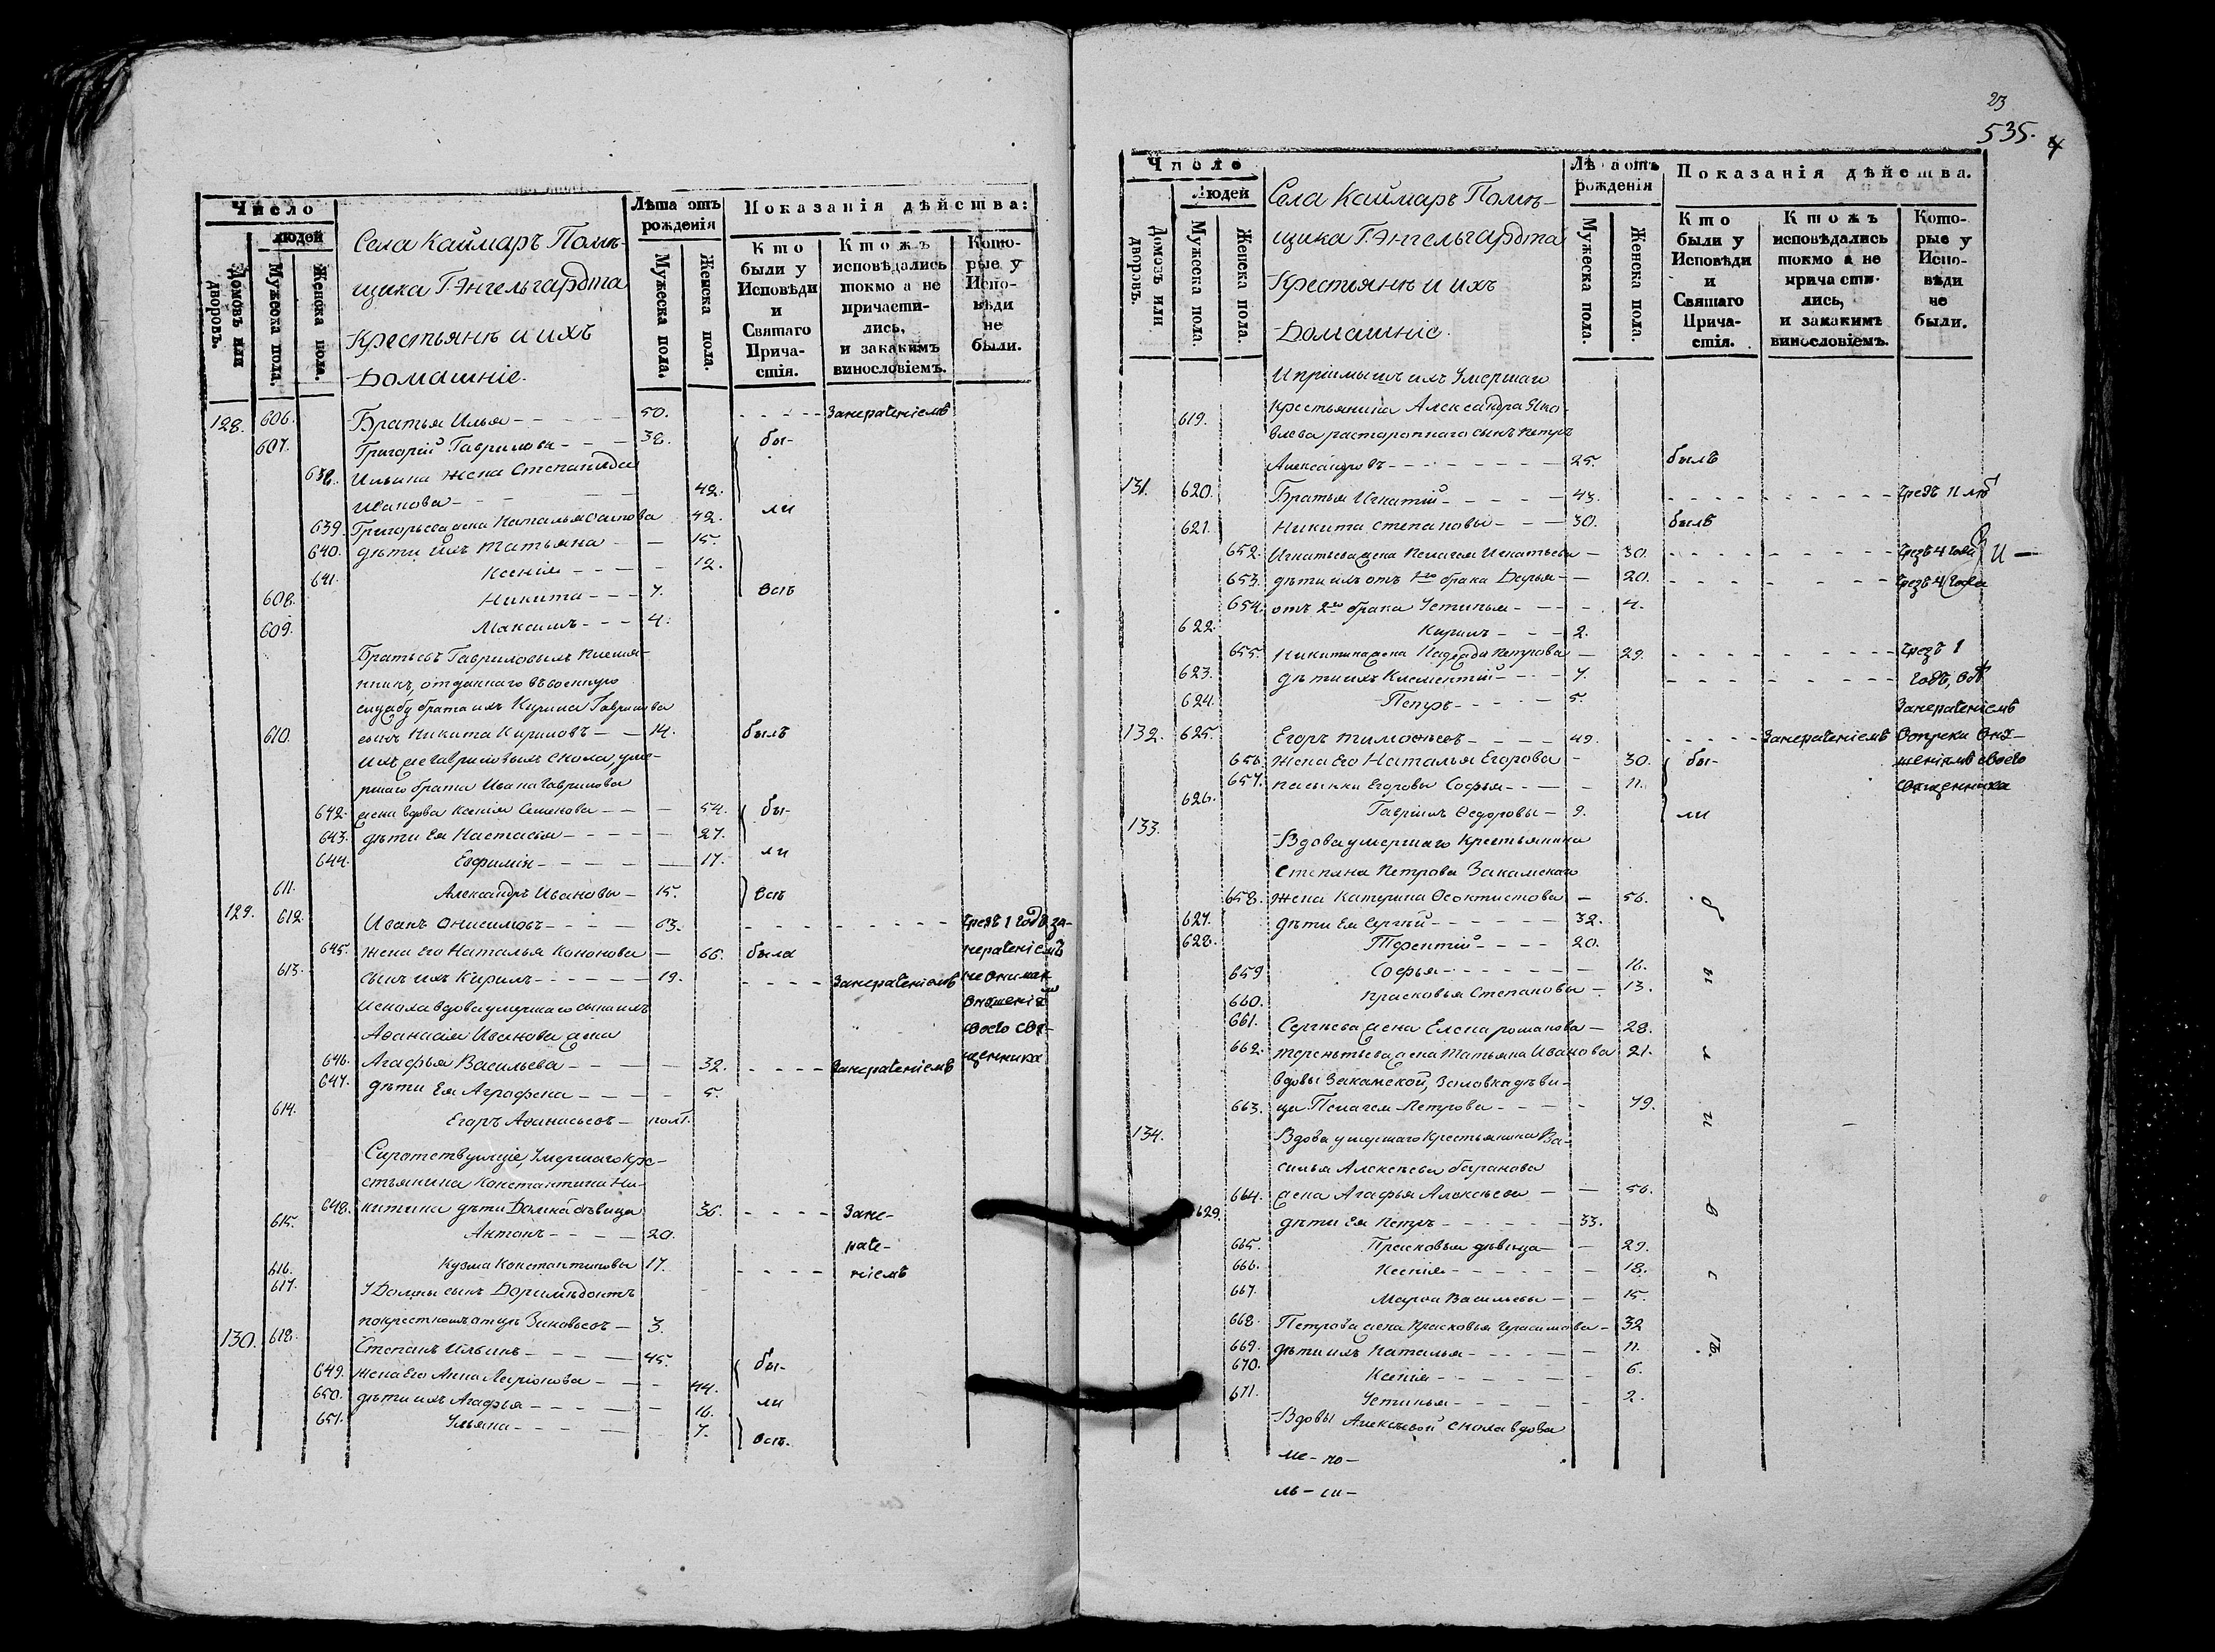 Число
людей
Домовъ или дворовъ.
Мужеска пола.
Женска пола.
Села Каймаръ Помѣ-
щика Г. Энгельгардта
Крестьянѣ и ихъ
Домашніе.
Лѣта отъ рожденія
Мужеска пола.
Женска пола.
Показанія дѣйства:
Кто были у Исповѣди и Святаго Прича- стія.
Ктожъ исповѣдались токмо а не причасти- лись, и закакимъ винословіемъ.
Кото- рые у Испо- вѣди не были.
128. 606. Братья Илья - - - 50. - - - - Занераченіемъ
607. Григорій Гавриловы - - - 38. бы-
638. Ильина жена Степанида
Иванова - - - 42. ли
639. Григорьева жена Наталья 42.
640. дѣти ихъ Татьяна - - 15.
641. Ксенія - - - 12.
608. Никита - - - 7. всѣ
609. Максимъ - - - 4.
Братьевъ Гавриловыхъ племя-
нникъ, отданнаго въ военную
службу брата ихъ Кирила Гаврилова
610. сынъ Никита Кириловъ - - 14. былъ
Ихъ же Гавриловыхъ сноха, уме-
ршаго брата Ивана Гаврилова
642. жена вдова Ксенія Семенова - - 54. бы-
643. дѣти Ея Настасья - - - 27.
644. Евфимія - - - 17. ли
611. Александръ Ивановы - 15. всѣ
129. 612. Иванъ Онисимовъ - - - 63. - - - Чрезъ 1 годъ за-
645. жена Его Наталья Кононова - 66. была нераченіемъ
613. сынъ ихъ Кирилъ - - - 19. - - - Занераченіемъ
И сноха вдова умершаго сына ихъ
своего свя-
Афанасія Иванова жена
щенника
646. Агафья Васильева - - - 32. - - - Занераченіемъ
647. дѣти Ея Аграфена - - - 5.
614. Егоръ Афанасьевъ - полг.
Сиротствующіе, Умершаго кре-
стьянина Константина Ни-
648. китина дѣти Домна дѣвица 36. - - - Зане-
615. Антонъ - - - 20. раче-
616. Кузма Константиновы 17. - - - ніемъ
617. У Домны сынъ Доримѣдонтъ
по крестномъ отцѣ Зиновьевъ - 3.
130. 618. Степанъ Ильинъ - - - 45. бы-
649. жена Его Анна Ларіонова - - - 44.
650. дѣти ихъ Агафья - - - 16. ли
651. Ульяна - - - 7. всѣ.
23
535.
4
Число
людей
Домовъ или дворовъ.
Мужеска пола.
Женска пола.
Села Каймаръ Помѣ-
щика Г. Энгельгардта
Крестьянѣ и ихъ
Домашніе.
Лѣта отъ рожденія
Мужеска пола.
Женска пола.
Показанія дѣйства.
Кто были у Исповѣди и Святаго Прича- стія.
Ктожъ исповѣдались токмо а не прича сти- лись, и закакимъ винословіемъ.
Кото- рые у Испо- вѣди не были.
И пріимышъ ихъ Умершаго
619. Крестьянина Александра Яко-
влева расторопнаго сынъ Петръ
Александровъ - - - 25. былъ
131. 620. Братья Игнатій - - - 43. - - - Чрезъ 11 лѣтъ
621. Никита Степановы - - - 30. былъ
652. Игнатьева жена Пелагея Игнатьева - 30. - - - Чрезъ 4 года И —
653. дѣти ихъ отъ 1го брака Дарья - - 20. - - - Чрезъ 4 года
654. отъ 2го брака Устинья - - - 4.
622. Кирилъ - - - 2.
655. Никитина жена Надежда Петрова - 29. - - - Чрезъ 1
623. дѣти ихъ Климентій - - - 7. - - - годъ, всѣ
624. Петръ - - - 5. Занераченіемъ
132. 625. Егоръ Тимофѣевъ - - - 49. - - - Занераченіемъ вопреки вну-
656. Жена Его Наталья Егорова - 30. бы- шенія своего
657. пасынки Егоровы Софья - - - 11. священника
626. Гаврилъ Федоровы - 9. ли
133. Вдова умершаго Крестьянина
Степана Петрова Закамскаго
658. Жена Катерина Феоктистова - 56. б
627. дѣти Ея Сергѣй - - - 32.
628. Терентій - - - 20.
659 Софья - - - 16.
660. Прасковья Степановы - 13. ы
661. Сергѣева жена Елена Романова - 28.
662. Терентьева жена Татьяна Иванова 21. л
вдовы Закамской, Заловка дѣви-
663. ца Пелагея Петрова - - - 79. и
134. Вдова умершаго Крестьянина Ва-
силья Алексѣева Баранова
664. жена Агафья Алексѣева - - 56.
629. дѣти Ея Петръ - - - 33. в
665. Прасковья дѣвица - - 29.
666. Ксенія - - - 18. с
667. Марфа Васильевы - - 15.
668. Петрова жена Прасковья Герасимова - 32
669. дѣти ихъ Наталья - - - 11. ѣ.
670. Ксенія - - - 6.
671. Устинья - - - 2.
Вдовы Алексѣевой сноха вдова